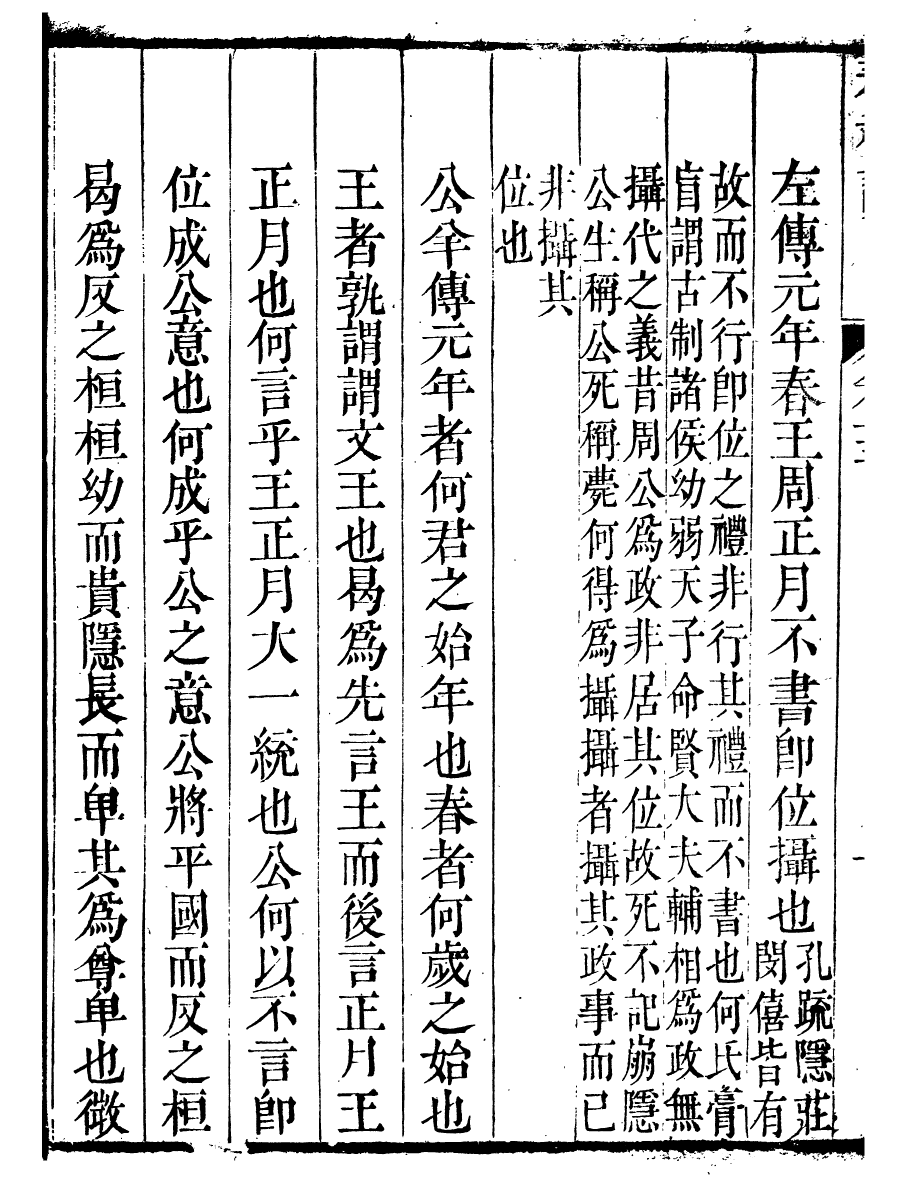 左傳元年春王周正月不書卽位攝也孔疏隱莊
閔僖皆有
故而不行卽位之禮非行其禮而不書也何氏膏
肓謂古制諸侯幼弱天子命賢大夫輔相爲政無
攝代之義昔周公爲政非居其位故死不記崩隱
公生稱公死稱薨何得爲攝攝者攝其政事而已
非攝其
位也
公羊傳元年者何君之始年也春者何歲之始也
王者孰謂謂文王也曷爲先言王而後言正月王
正月也何言乎王正月大一統也公何以不言卽
位成公意也何成乎公之意公將平國而反之桓
曷爲反之桓桓幼而貴隱長而卑其爲尊卑也微